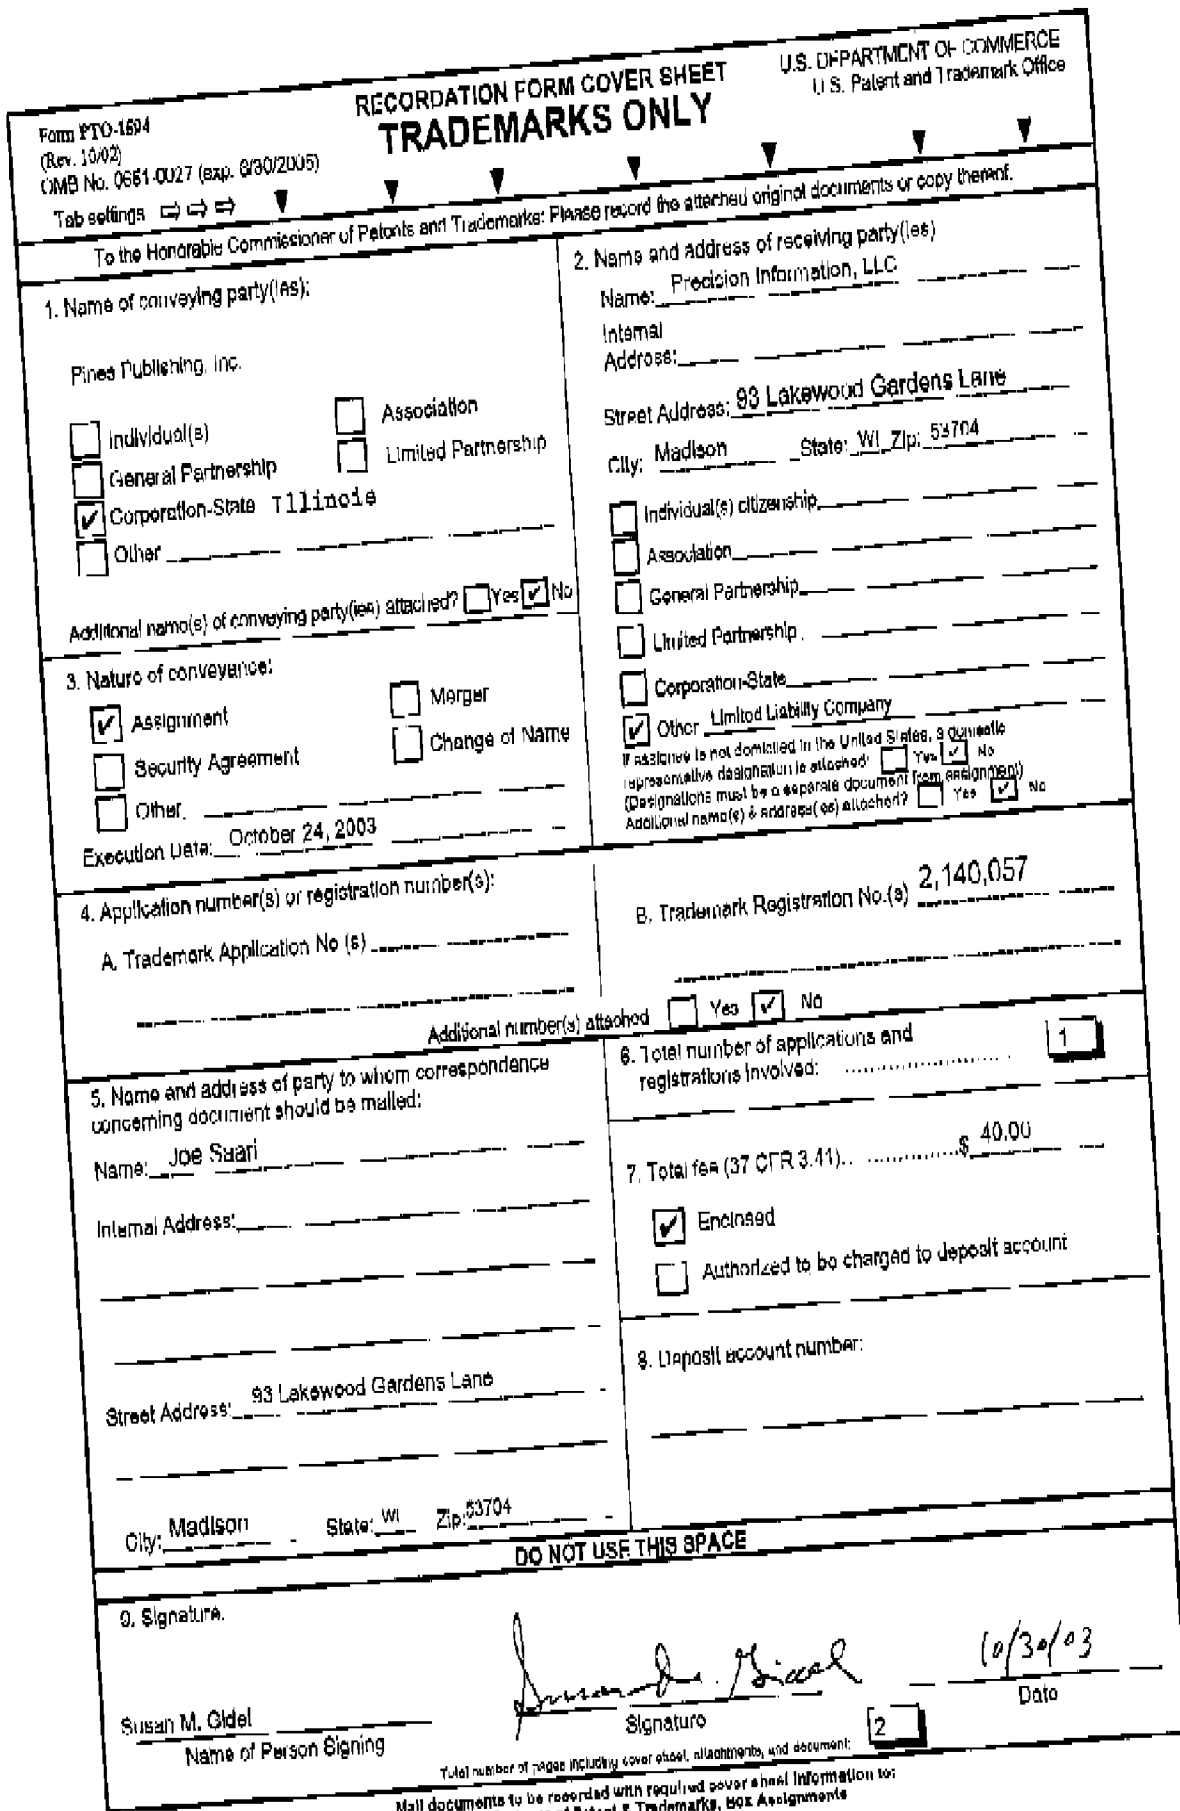 Form PTO-1594
(Rev. 10/02)
OMB No. 0651-0027 (exp. 6/30/2005)
Tab settings
RECORDATION FORM COVER SHEET
TRADEMARKS ONLY
U.S. DEPARTMENT OF COMMERCE
U.S. Patent and Trademark Office
To the Honorable Commissioner of Patents and Trademarks: Please record the attached original documents or copy thereof.
1. Name of conveying party(ies):
Pines Publishing, Inc.
Individual(s)
Association
General Partnership
Limited Partnership
Corporation-State Illinois
Other
Additional name(s) of conveying party(ies) attached? Yes No
2. Name and address of receiving party(ies)
Name: Precision Information, LLC
Internal
Address:
Street Address: 93 Lakewood Gardens Lane
City: Madison State: WI Zip: 53704
Individual(s) citizenship
Association
General Partnership
Limited Partnership
Corporation-State
Other Limited Liability Company
If assignee is not domiciled in the United States, a domestic
representative designation is attached: Yes No
(Designations must be a separate document from assignment)
Additional name(s) & address(es) attached? Yes No
3. Nature of conveyance:
Assignment
Merger
Security Agreement
Change of Name
Other
Execution Date: October 24, 2003
4. Application number(s) or registration number(s):
A. Trademark Application No.(s)
B. Trademark Registration No.(s) 2,140,057
Additional number(s) attached Yes No
5. Name and address of party to whom correspondence
concerning document should be mailed:
Name: Joe Saari
Internal Address:
Street Address: 93 Lakewood Gardens Lane
City: Madison State: WI Zip: 53704
6. Total number of applications and
registrations involved: 1
7. Total fee (37 CFR 3.41) $ 40.00
Enclosed
Authorized to be charged to deposit account
8. Deposit account number:
DO NOT USE THIS SPACE
9. Signature.
Susan M. Gidel
Name of Person Signing
Susan M. Gidel
Signature
10/30/03
Date
Total number of pages including cover sheet, attachments, and document: 2
Mail documents to be recorded with required cover sheet information to:
Patent & Trademarks, Box Assignments